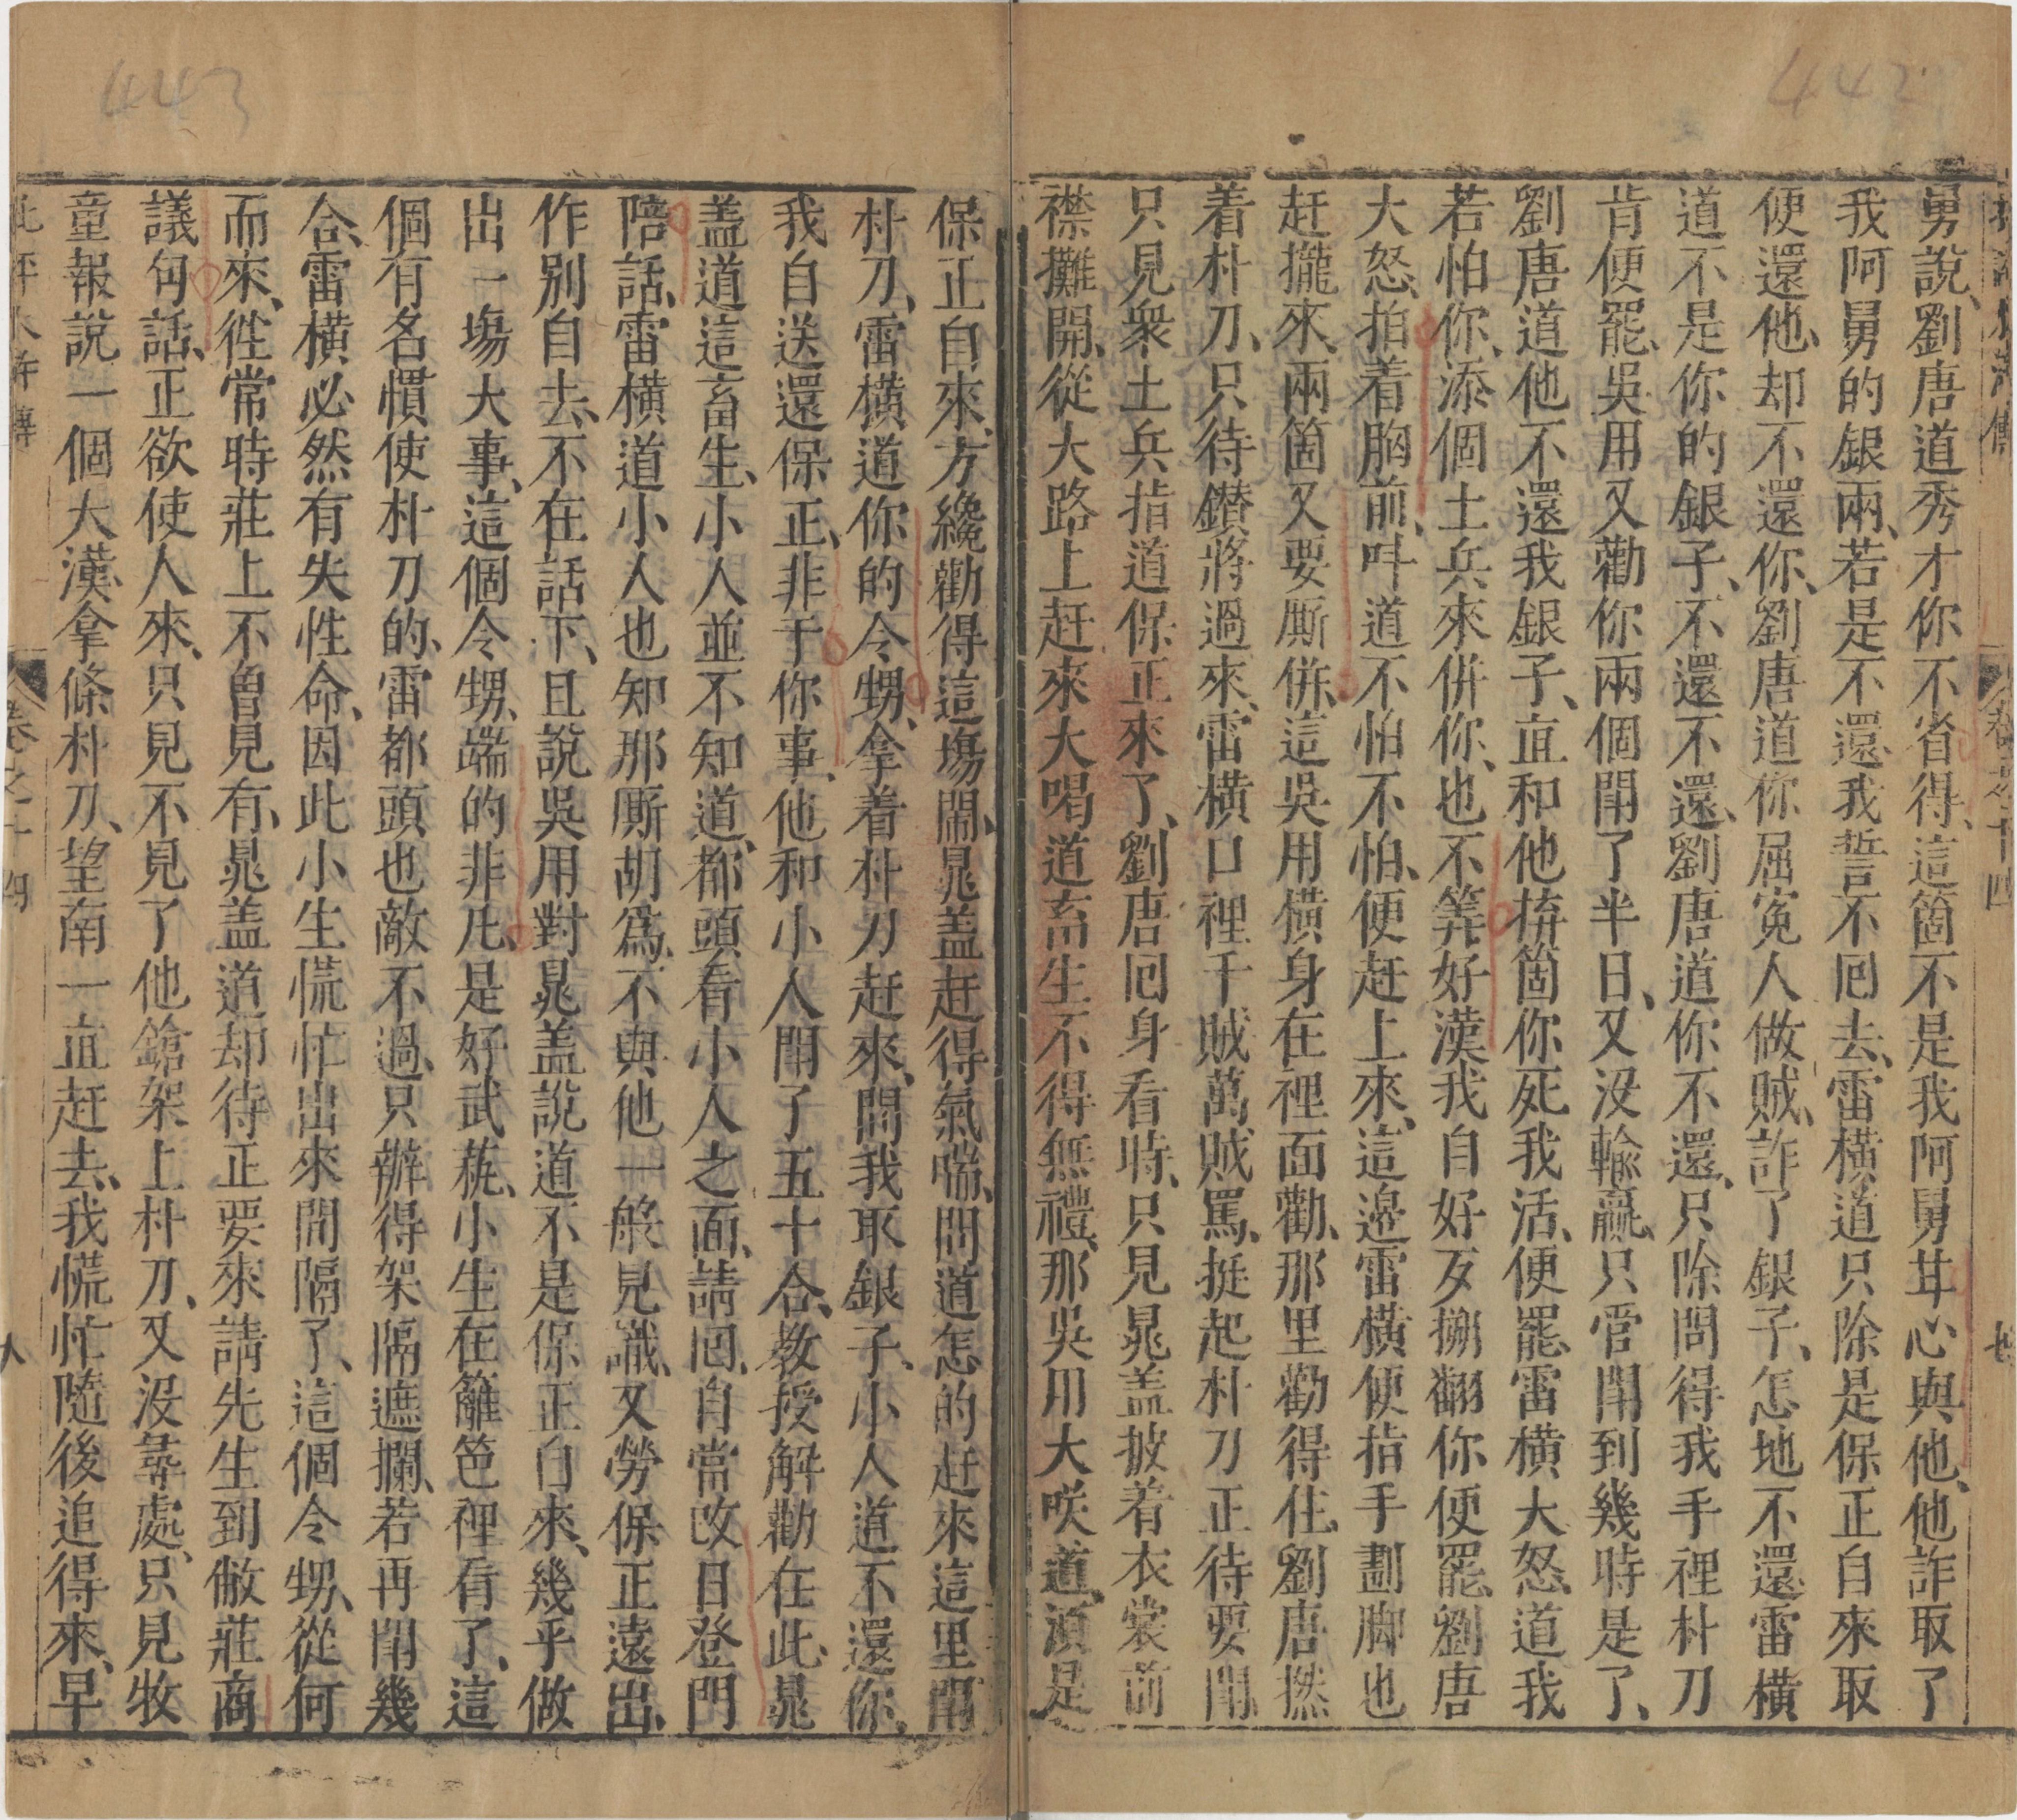 442
443
舅說、劉唐道秀才你不省得、這箇不是我阿舅甘心與他、他詐取了
我阿舅的銀兩、若是不還我誓不囘去、雷橫道只除是保正自來取
便還他、却不還你、劉唐道你屈寃人做賊、詐了銀子、怎地不還雷橫
道不是你的銀子、不還不還、劉唐道你不還、只除問得我手裡朴刀
肯便罷、吳用又勸你兩個閙了半日、又没輸贏、只管閙到幾時是了、
劉唐道他不還我銀子、直和他拚箇你死我活、便罷、雷橫大怒、道我
若怕你、添個土兵來併你、也不筭好漢我自好歹搠翻你便罷、劉唐
大怒、拍着胸前、呌道不怕不怕、便赶上來、這邊雷橫便指手劃脚也
赶攏來、兩箇又要厮併、這吳用橫身在裡面勸、那里勸得住、劉唐撚
着朴刀、只待鑽將過來、雷橫口裡千賊萬賊罵、挺起朴刀正待要閙、
只見衆土兵指道保正來了、劉唐囘身看時、只見晁盖披着衣裳前
襟攤開、從大路上赶來大喝道畜生不得無禮、那吳用大咲道、湏是
保正自來、方纔勸得這塲閙、晁盖赶得氣喘、問道怎的赶來這里閙
朴刀、雷橫道你的令甥、拿着朴刀赶來、問我取銀子、小人道不還你、
我自送還保正、非干你事、他和小人閙了五十合、教授解勸在此、晁
盖道這畜生、小人並不知道、都頭看小人之面、請囘、自當改日登門
陪話、雷橫道小人也知那厮胡爲、不與他一般見識、又勞保正遠出、
作别自去、不在話下、且說吳用對晁盖說道不是保正自來、幾乎做
出一塲大事、這個令甥、端的非凡、是好武藝、小生在籬笆裡看了、這
個有名慣使朴刀的、雷都頭也敵不過、只辦得架隔遮攔、若再閙幾
合、雷橫必然有失性命、因此小生慌忙出來間隔了、這個令甥、從何
而來、徃常時莊上不曾見有、晁盖道却待正要來請先生到敝莊商
議句話、正欲使人來、只見不見了他鎗架上朴刀、又没尋處、只見牧
童報說一個大漢拿條朴刀、望南一直赶去、我慌忙隨後追得來、早